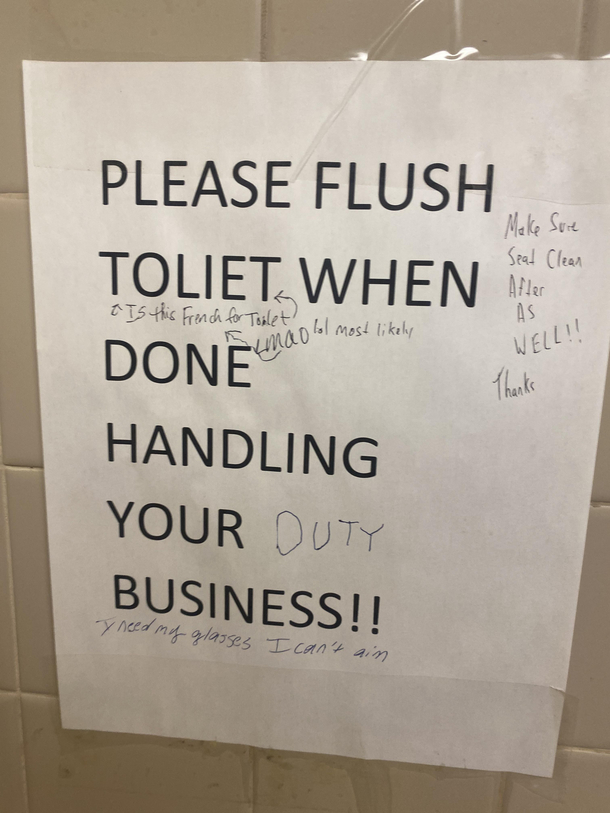 PLEASE FLUSH
TOLIET WHEN
Is this French for Toilet
Lmao
lol most likely
DONE
HANDLING
YOUR DUTY
BUSINESS!!
I need my glasses I can't aim
Make Sure
Seat Clean
After
As
WELL!!
Thanks